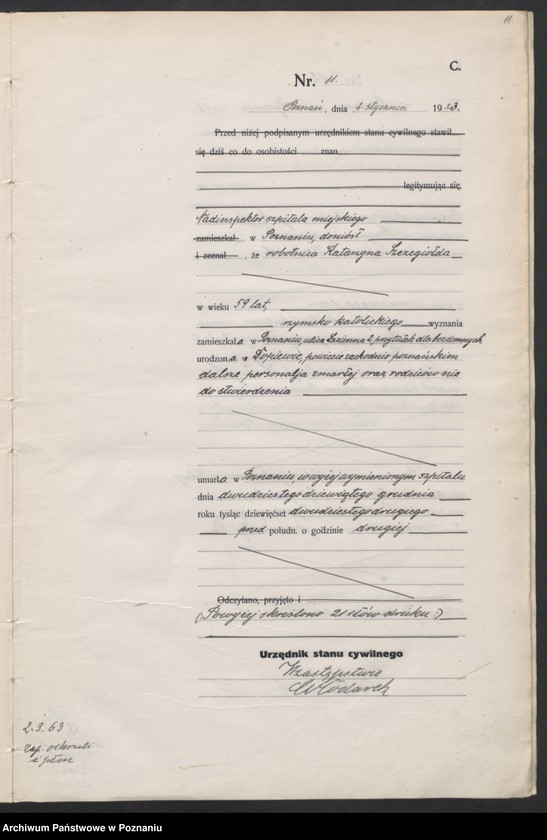 11
C.
Nr. 11.
Poznań, dnia 2 stycznia 1923.
Przed niżej podpisanym urzędnikiem stanu cywilnego stawił
się dziś co do osobistości znan
legitymując się,
Nadinspektor szpitala miejskiego
zamieszkał w Poznaniu, doniósł
i zeznał, że robotnica Katarzyna Szczegiołda
w wieku 59 lat,
rzymsko katolickiego wyznania
zamieszkała w Poznaniu, ulica Łazienna 2, przytułek dla bezdomnych
urodzona w Dopiewie, powiecie zachodnio poznańskim
dalsze personalja zmarłej oraz rodziców nie
do stwierdzenia
umarła w Poznaniu w wyżej wymienionym szpitalu
dnia dwudziestego dziewiątego grudnia
roku tysiąc dziewięćset dwudziestego drugiego
przed połudn. o godzinie drugiej
Odczytano, przyjęto i
(: Powyżej skreślono 21 słów druku :)
Urzędnik stanu cywilnego
W zastępstwie
Włodarek
2.3.63
Archiwum Państwowe w Poznaniu